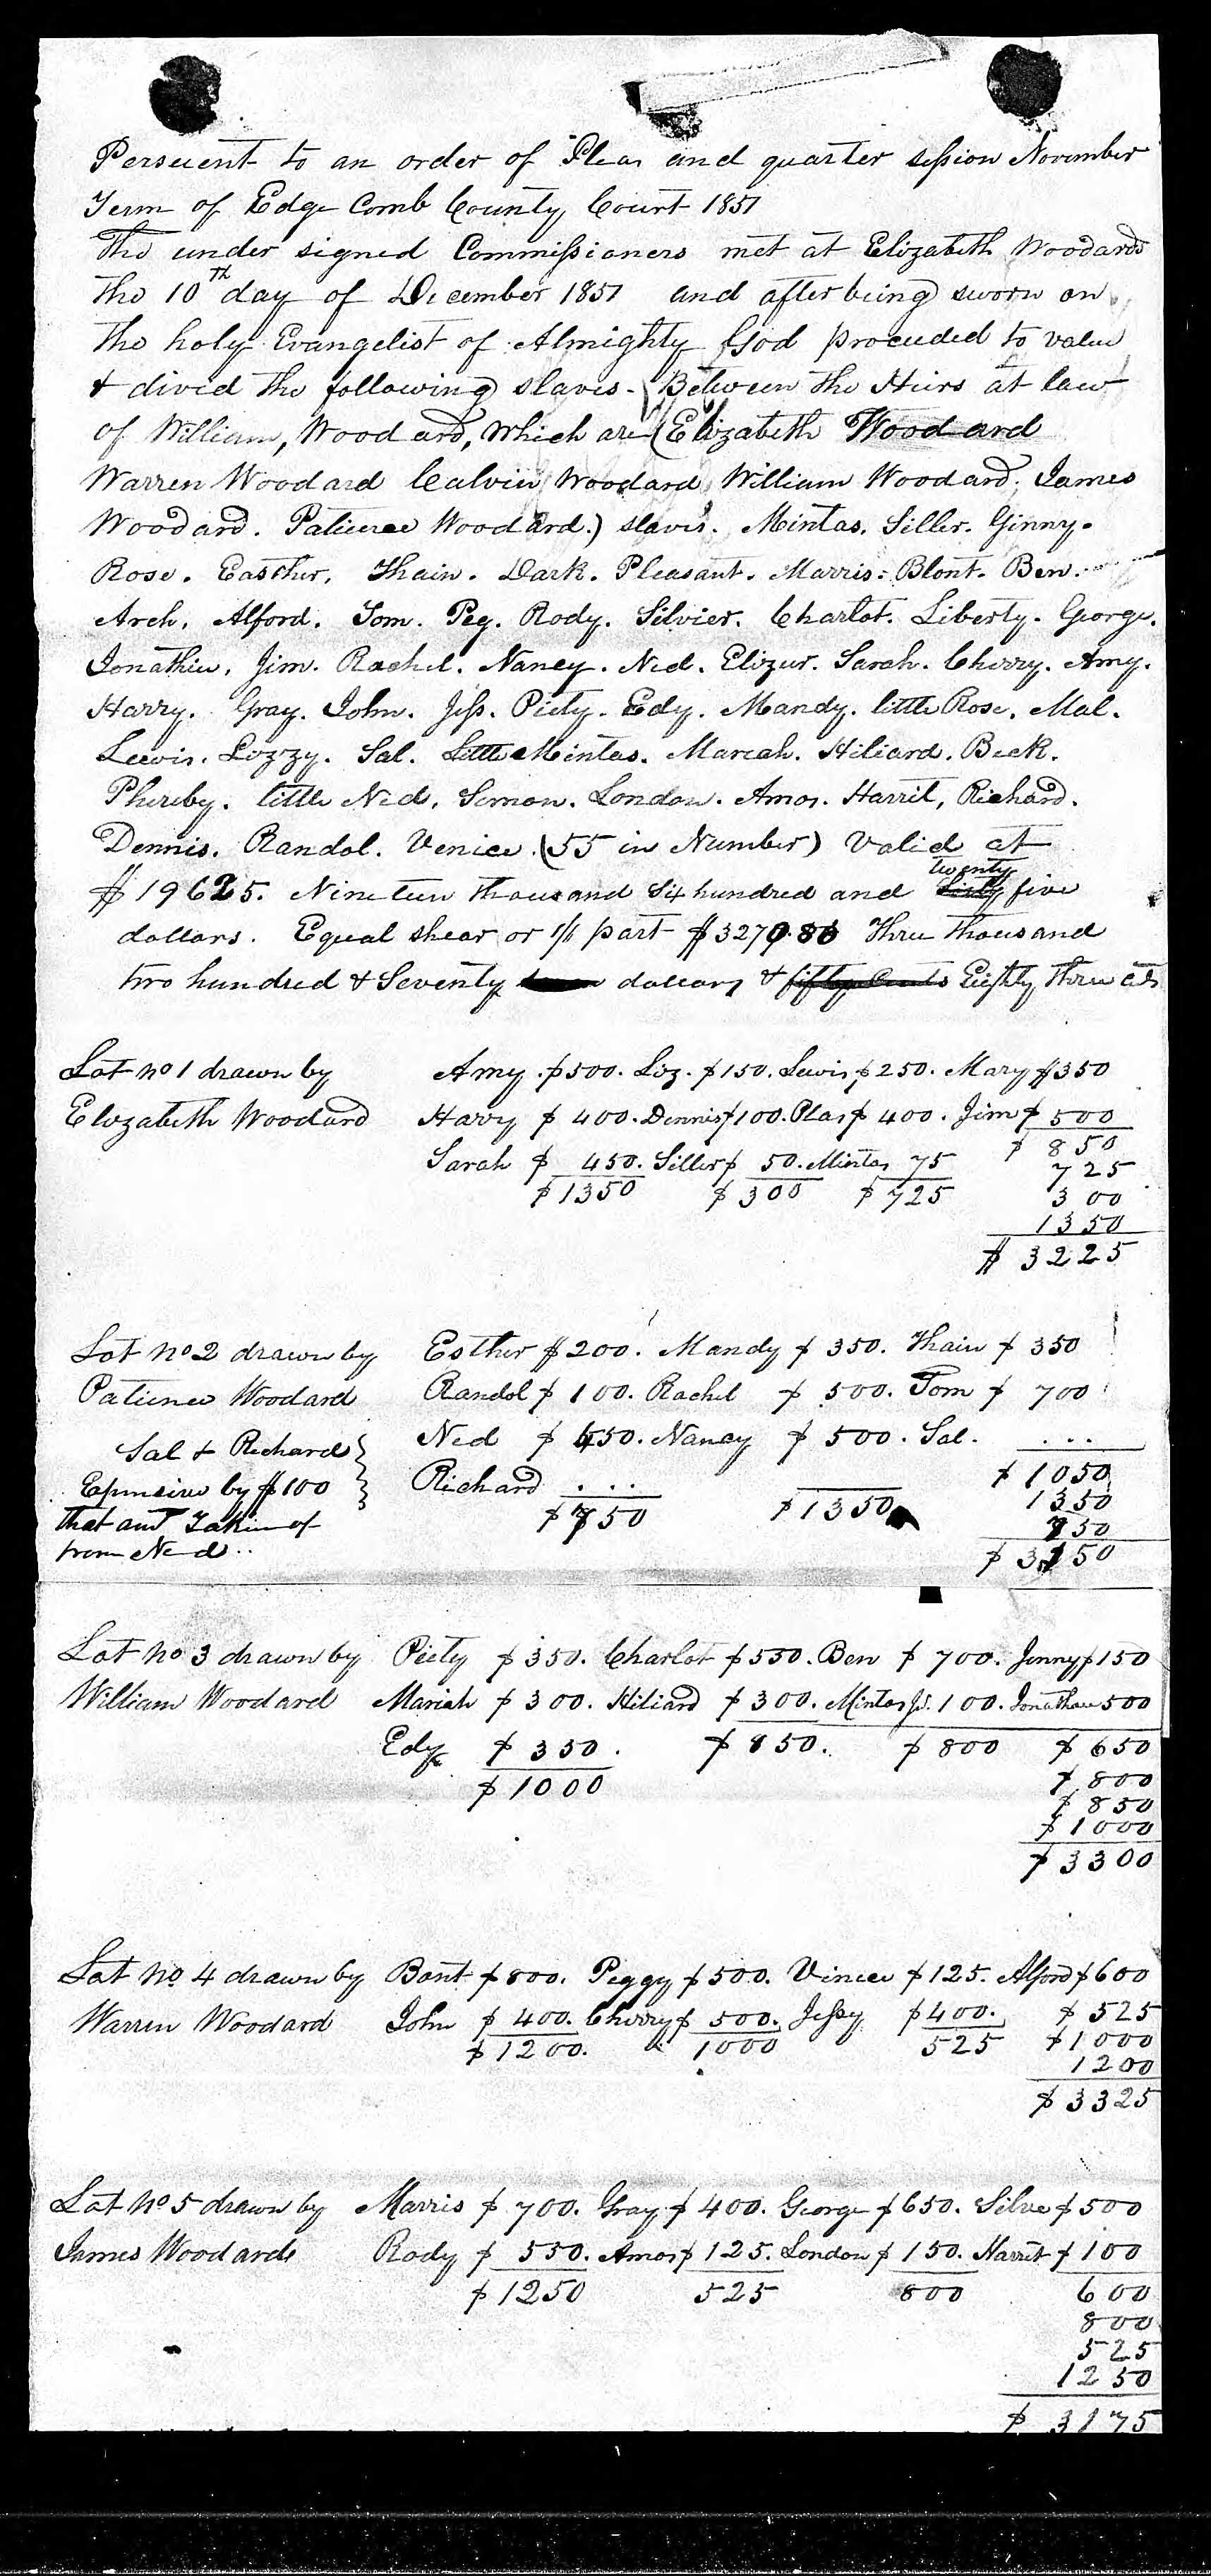 Persuent to an order of Pleas and quarter session November
Term of Edge Comb County Court 1851
The under signed Commissioners met at Elizabeth Woodards
the 10th day of December 1851 and after being sworn on
the holy Evangelist of Almighty God proceeded to value
& divid the following slaves - Between the Heirs at law
of William, Woodard, which are (Elizabeth Woodard
Warren Woodard Calvin Woodard William Woodard. James
Woodard. Patience Woodard.) slaves. Mintas. Siller. Ginny.
Rose. Easther. Thain. Dark. Pleasant. Marris. Blont. Ben.
Arch. Alford. Tom. Peg. Rody. Silvier. Charlot. Liberty. George.
Jonathin. Jim. Rachel. Nancy. Ned. Elizur. Sarah. Cherry. Amy.
Harry. Gray. John. Jess. Piety. Edy. Mandy. little Rose. Mal.
Lewis. Lizzy. Sal. Little Mintas. Mariah. Hiliard. Beck.
Phereby. little Ned. Simon. London. Amos. Harrit, Richard.
Dennis. Randol. Venice. (55 in Number) Valid at
$19625. Nineteen thousand Six hundred and twenty five
dollars. Equal shear or 1/6 part $3270.83 Three thousand
two hundred & Seventy dollars & fifty Cents Eighty three cts
Lot no 1 drawn by Amy. $500. Liz. $150. Lewis $250. Mary $350
Elizabeth Woodard Harry $400. Dennis $100. Plas $400. Jim $500
Sarah $450. Siller $50. Mintas 75 $850
$1350 $300 $725 725
300
1350
$3225
Lot no 2 drawn by Esther $200. Mandy $350. Thain $350
Patience Woodard Randol $100. Rachel $500. Tom $700
Sal & Richard Ned $450. Nancy $500. Sal. ...
Expensive by $100 Richard ... $1050
that amt Taken of $750 $1350 1350
from Ned.. 750
$3150
Lot no 3 drawn by Piety $350. Charlot $550. Ben $700. Jenny $150
William Woodard Mariah $300. Hiliard $300. Mintas Jr. 100. Jonathan 500
Edy $350. $850. $800 $650
$1000 $800
$850
$1000
$3300
Lot no 4 drawn by Bont $800. Peggy $500. Vinice $125. Alford $600
Warren Woodard John $400. Cherry $500. Jessy $400. $525
$1200. 1000 525 $1000
1200
$3325
Lot no 5 drawn by Marris $700. Gray $400. George $650. Silve $500
James Woodards Rody $550. Amos $125. London $150. Harrit $100
$1250 525 800 600
800
525
1250
$3175